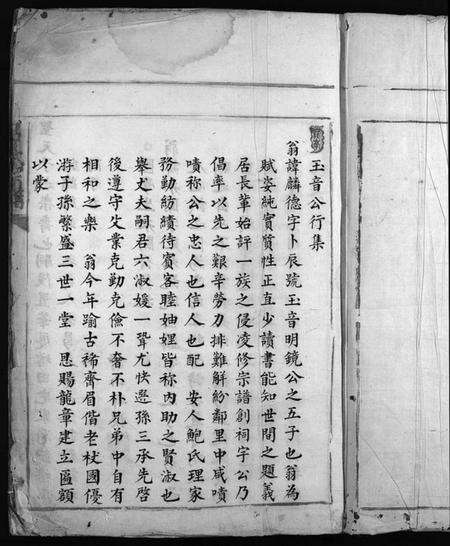 玉音公行集
翁諱麟德字卜辰號玉音明鏡公之五子也翁為
賦姿純實賢性正直少讀書能知世間之題義
居長輩始評一族之侵凌修宗譜創祠宇公乃
倡率以先之艱辛勞力排難解紛鄰里中咸嘖
嘖称公之忠人也信人也配 安人鮑氏理家
務勤紡績待賓客睦妯娌皆称內助之賢淑也
舉丈夫嗣君六淑媛一聟尤快選孫三承先啓
後遵守父業克勤克儉不奢不朴兄弟中自有
相和之樂 翁今年踰古稀齊眉偕老杖國優
游子孫繁盛三世一堂 恩賜龍章建立匾額
以蒙